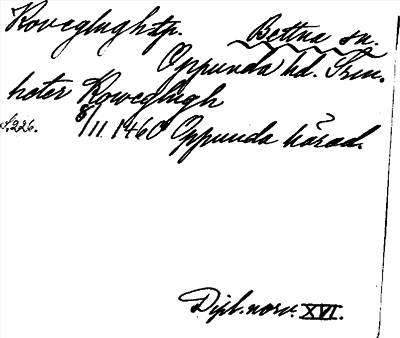 Koveglughtp. Bettna sn.
Oppunda hd. Srm.
heter Koweglugh
s. 226. 8/11 1460 Oppunda härad.
Dipl. norv. XVI.